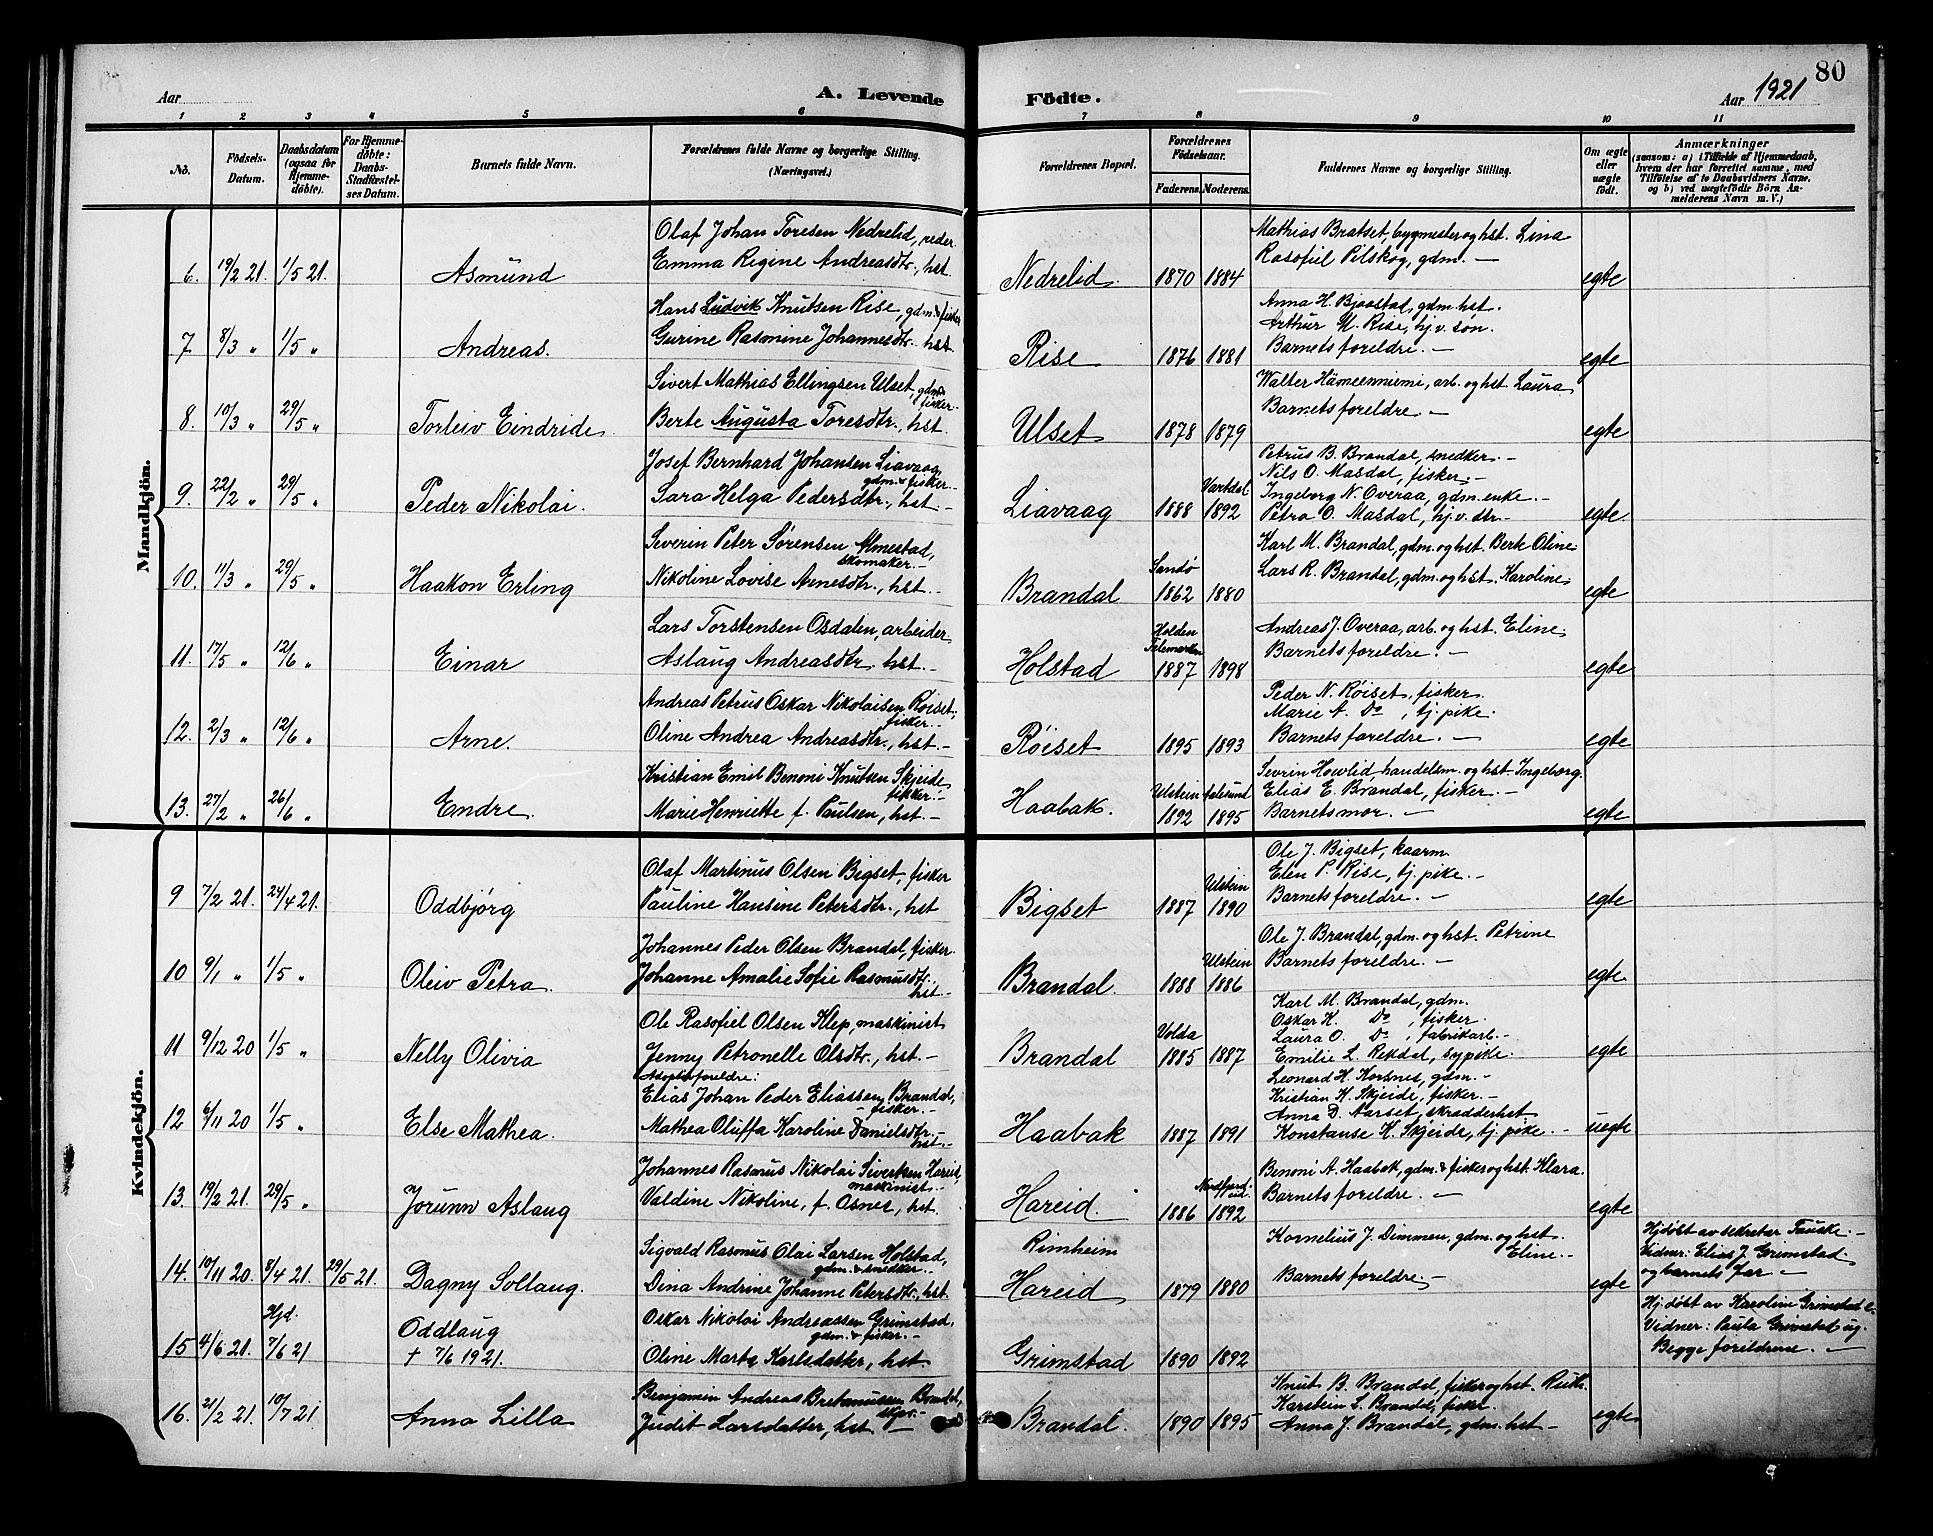 80
Aar
A. Levende
Födte.
Aar 1921
1 2 3 4 5 6 7 8 9 10 11
No.
Födsels-Datum.
Daabsdatum (ogsaa for Hjemme-döbte).
For Hjemme-döbte: Daabs-Stadfæstel-ses Datum.
Barnets fulde Navn.
Forældrenes fulde Navne og borgerlige Stilling. (Næringsvei.)
Forældrenes Bopæl.
Forældrenes Födselsaar.
Faderens. Moderens.
Faddernes Navne og borgerlige Stilling.
Om ægte eller uægte födt.
Anmærkninger
(saasom: a) i Tilfælde af Hjemmedaab, hvem der har forrettet samme, med Tilföielse af to Daabsvidners Navne, og b) ved uægtefödte Börn An-melderens Navn m. V.)
Mandkjön.
Olaf Johan Toresen Nedrelid, reder
Mathias Bratset, bygmester og hst. Lina
6. 19/2 21. 1/5 21. Asmund Emma Regine Andreasdtr., hst. Nedrelid. 1870 1884 Rasofiel Pilskog, gdm. — egte
Hans Ludvik Knutsen Rise, gdm. & fisker
Anna H. Bjaastad, gdm. hst.
Arthur M. Rise, hj.v. søn.
7 8/3 „ 1/5 „ Andreas. Gurine Rasmine Johannesdtr. hst. Rise 1876 1881 Barnets foreldre. — egte
Sivert Mathias Ellingsen Ulset, gdm. & fisker.
Walter Hämeenniemi, arb. og hst. Laura
8. 10/3 „ 29/5 „ Torleiv Eindride. Berte Augusta Toresdtr., hst. Ulset 1878 1879 Barnets foreldre. — egte
Josef Bernhard Johansen Liavaag gdm. & fisker. —
Petrus B. Brandal, snedker. —
Nils O. Masdal, fisker. —
9. 22/2 „ 29/5 „ Peder Nikolai. Sara Helga Pedersdtr., hst. — Liavaag 1888 Vartdal 1892 Ingeborg N. Overaa, gdm. enke. —
Petra O. Masdal, hj.v. dtr. — egte
Severin Peter Sørensen Almestad, skomaker. —
Karl M. Brandal, gdm. og hst. Berte Oline
10. 11/3 „ 29/5 „ Haakon Erling Nikoline Lovise Arnesdtr., hst. Brandal Sandø 1862 1880 Lars R. Brandal, gdm. og hst. Karoline egte
Lars Torstensen Osdalen, arbeider
Andreas J. Overaa, arb. og hst. Eline
11. 17/5 „ 12/6 „ Einar Aslaug Andreasdtr. hst. — Holstad Holden Telemarken 1887 1898 Barnets foreldre. — egte
Andreas Petrus Oskar Nikolaisen Røiset, fisker. —
Peder N. Røiset, fisker.
Marie A. Do , tj. pike.
12. 2/3 „ 12/6 „ Arne. Oline Andrea Andreasdtr., hst. — Røiset 1895 1893 Barnets foreldre. — egte
Kristian Emil Benoni Knutsen Skjeide, fisker. —
Sevrin Hovlid handelsm. og hst. Ingeborg.
Elias E. Brandal, fisker. —
13. 27/2 „ 26/6 „ Endre. Marie Henriette f. Paulsen, hst. — Haabak. Ulstein 1892 Aalesund 1895 Barnets mor. — egte
Kvindekjön.
Olaf Martinus Olsen Bigset, fisker
Ole J. Bigset, kaarm.
Elen P. Rise, tj. pike. —
9 7/2 21. 24/4 21. Oddbjørg Pauline Hansine Petersdtr., hst Bigset 1887 Ulstein 1890 Barnets foreldre. — egte
Johannes Peder Olsen Brandal, fisker.
Ole J. Brandal, gdm. og hst. Petrine
10 9/1 „ 1/5 „ Oleiv Petra. Johanne Amalie Sofie Rasmusdtr. hst. Brandal. 1888 Ulstein 1886 Barnets foreldre. — egte
Ole Rasofiel Olsen Klep, maskinist
Karl M. Brandal, gdm.
Oskar K. Do , fisker.
Laura O. Do , fabrikarb. —
11 9/12 20 1/5 „ Nelly Olivia Jenny Petronelle Olsdtr., hst. — Brandal Volda 1885 1887 Emilie L. Rekdal, sypike. egte
Adoptivforeldre:
Elias Johan Peder Eliassen Brandal, fisker. —
Leonard H. Korsnes, gdm. —
Kristian K. Skjeide, fisker. —
Anna D. Aarset, skrædderhst.
12 6/11 20 1/5 „ Else Mathea. Mathea Oluffa Karoline Danielsdtr. hst. Haabak 1887 1891 Konstanse K. Skjeide, tj. pike. — uegte
Johannes Rasmus Nikolai Sivertsen Hareid, maskinist. —
Benoni A. Haabak, gdm. & fisker og hst. Klara.
13. 19/2 21. 29/5 „ Jorunn Aslaug Valdine Nikoline, f. Osnes, hst. Hareid. 1886 Nordfjordeid. 1892 Barnets foreldre. — egte
Sigvald Rasmus Olai Larsen Holstad, gdm. & snedker. —
Rimheim
Kornelius J. Dimmen, gdm. og hst. Eline. —
Hj.døbt av sekretær Fauske. —
Vidner: Elias J. Grimstad
og barnets far —
14. 10/11 20. 8/4 21. 29/5 21. Dagny Solbaug. Dina Andrine Johanne Petersdtr., hst Hareid 1879 1880 Barnets foreldre. — egte
Oskar Nikolai Andreassen Grimstad, gdm. & fisker. —
Hj.døbt av Karoline Grimstad e.
Vidner: Paula Grimstad ug.
Begge foreldrene. —
15 4/6 21. Hjd. 7/6 21 Oddlaug
† 7/6 1921. Oline Marta Karlsdatter, hst Grimstad 1890 1892
Benjamin Andreas Bertinussen Brandal,
Knut B. Brandal, fisker og hst. Ruth.
Karstein L. Brandal, fisker.
16. 2/2 21. 10/7 21 Anna Lilla Judit Larsdatter, hst — Brandal. 1890 1895 Anna J. Brandal, gdm. hst — egte